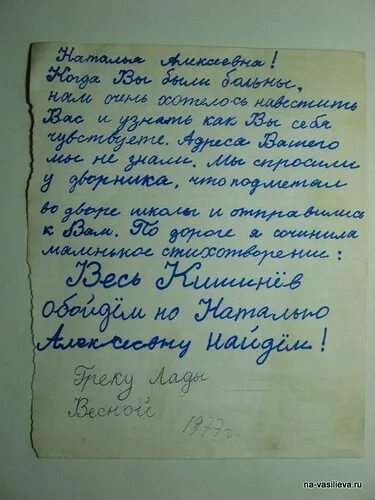 Наталья Алексеевна!
Когда Вы были больны,
нам очень хотелось навестить
Вас и узнать как Вы себя
чувствуете. Адреса Вашего
мы не знали. Мы спросили
у дворника, что подметал
во дворе школы и отправились
к Вам. По дороге я сочинила
маленькое стихотворение:
Весь Кишинёв
обойдём но Наталью
Алексеевну найдём!
Греку Лады
Весной
1977г.
na-vasilieva.ru